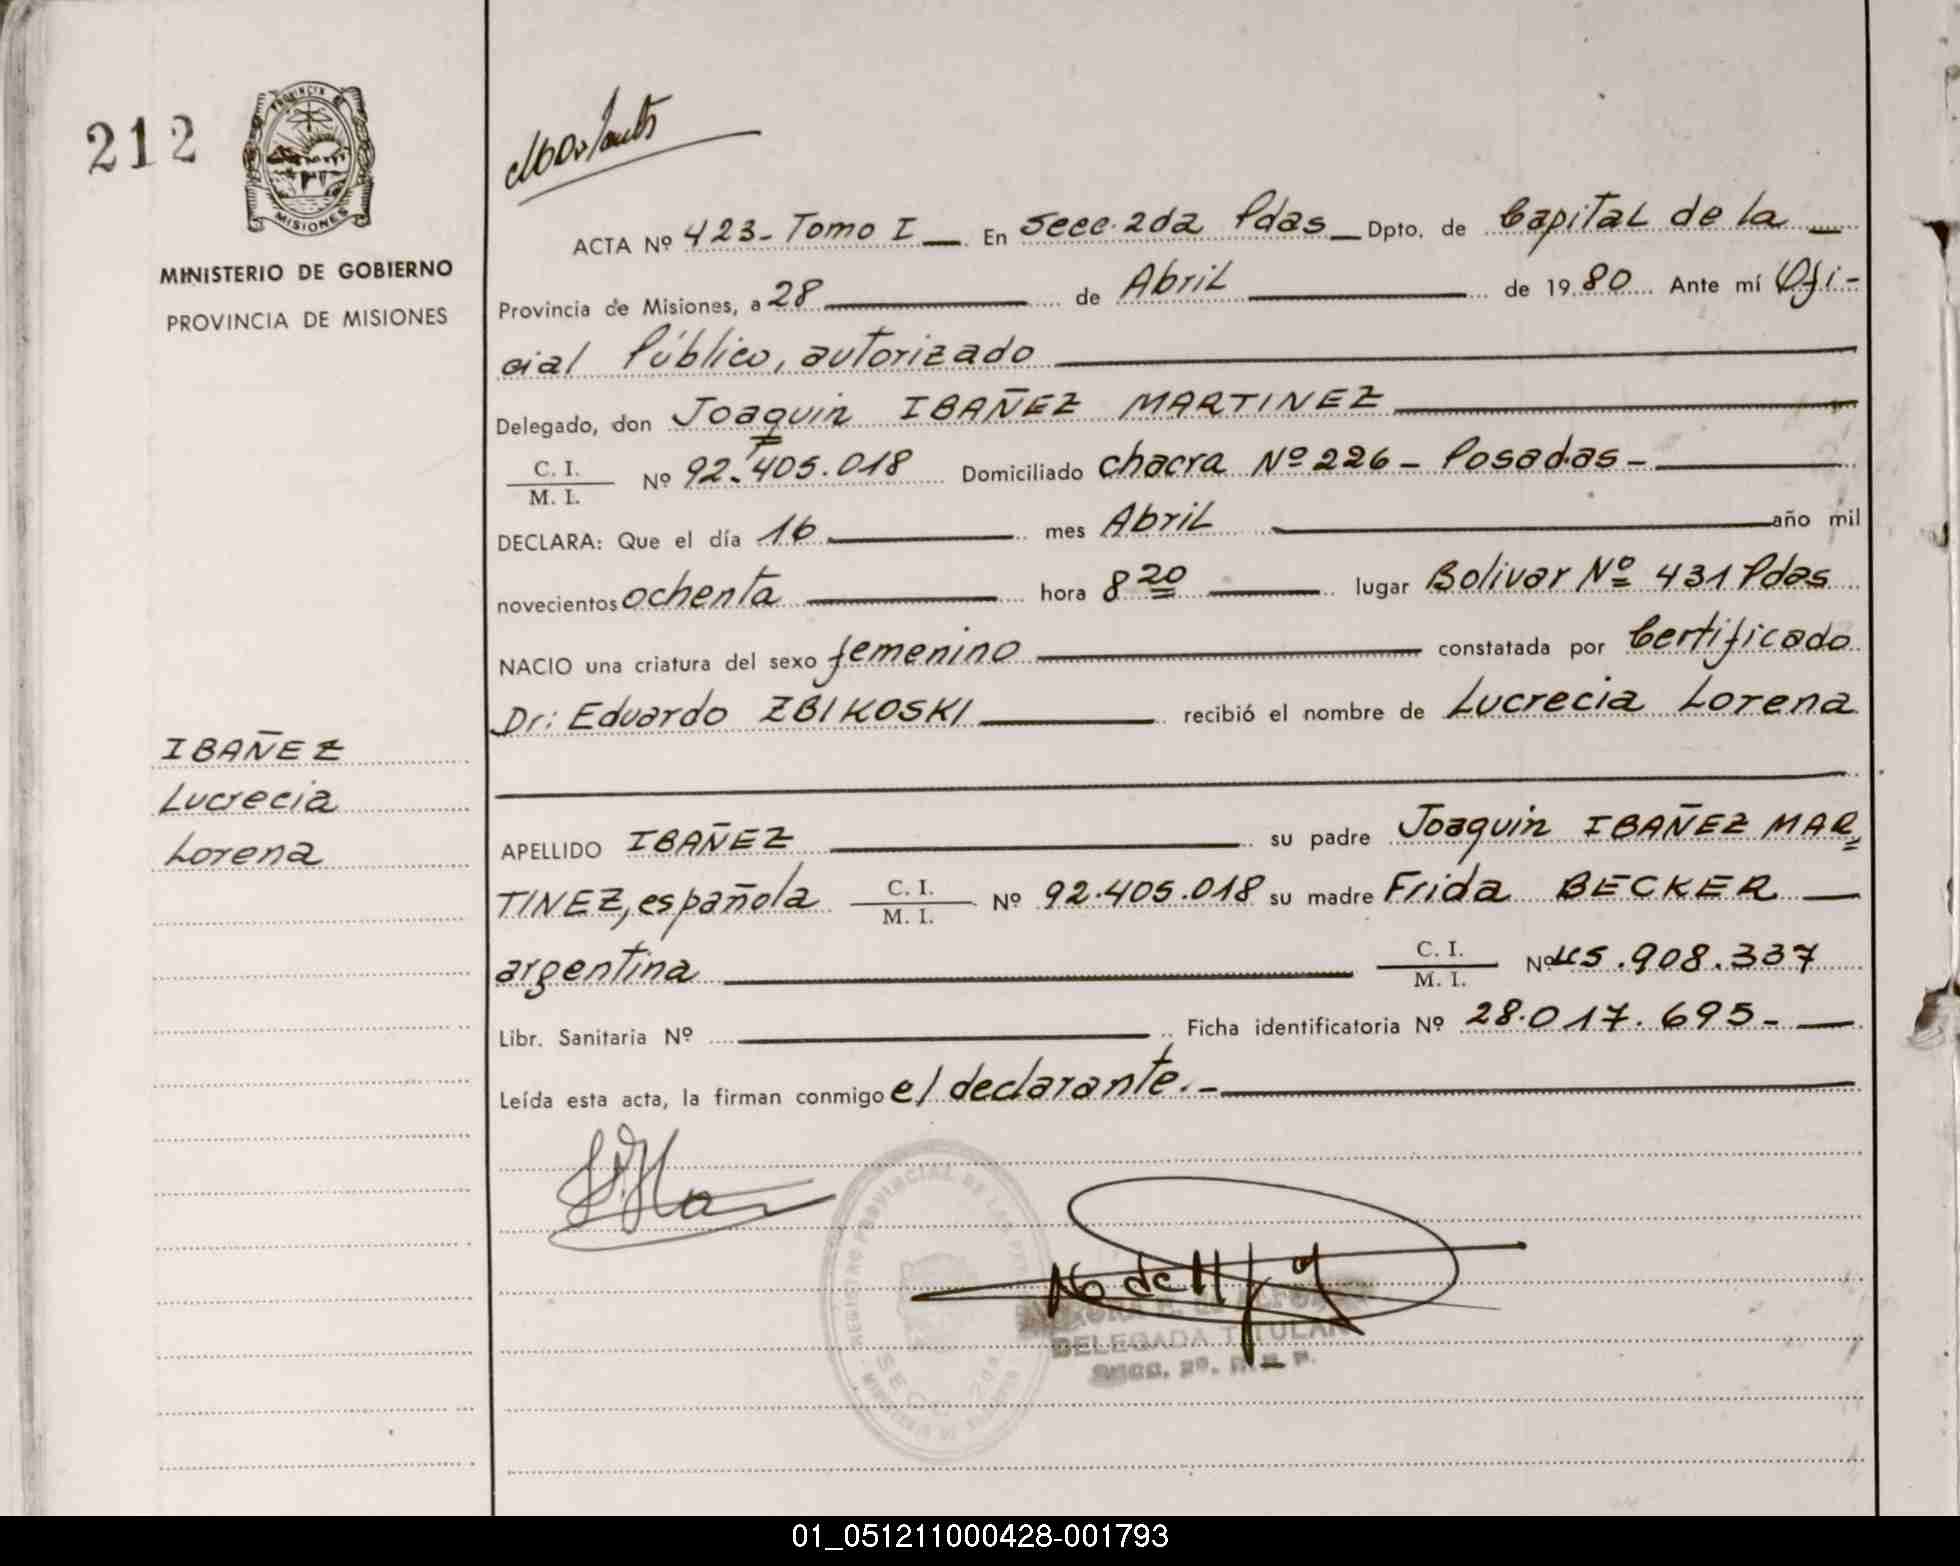 212
PROVINCIA DE
MISIONES
MINISTERIO DE GOBIERNO
PROVINCIA DE MISIONES
IBAÑEZ
Lucrecia
Lorena
ACTA Nº 423- Tomo I _ En Secc. 2da Pdas _ Dpto. de Capital de la _
Provincia de Misiones, a 28 de Abril de 1980 Ante mí Ofi-
cial Público, autorizado
Delegado, don Joaquin IBAÑEZ MARTINEZ
C. I.
M. I. Nº 92.405.018 Domiciliado chacra Nº 226 - Posadas -
DECLARA: Que el día 16 mes Abril año mil
novecientos ochenta hora 8 20 lugar Bolivar Nº 431 Pdas
NACIO una criatura del sexo femenino constatada por Certificado
Dr: Eduardo ZBIKOSKI recibió el nombre de Lucrecia Lorena
APELLIDO IBAÑEZ su padre Joaquin IBAÑEZ MAR
TINEZ, española C. I.
M. I. Nº 92.405.018 su madre Frida BECKER
argentina C. I.
M. I. Nº 5.908.337
Libr. Sanitaria Nº Ficha identificatoria Nº 28.017.695-
Leída esta acta, la firman conmigo el declarante.-
REGISTRO PROVINCIAL DE LAS
SECC. 2da
DELEGADA TITULAR
SECC. 2ª. R. P. P.
01_051211000428-001793